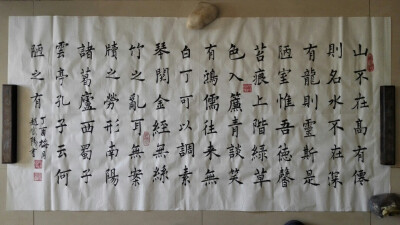 山不在高有僊
則名水不在深
有龍則靈斯是
陋室惟吾德馨
苔痕上階綠草
色入簾青談笑
有鴻儒往来無
白丁可以調素
琴閱金經無絲
竹之亂耳無案
牘之勞形南陽
諸葛廬西蜀子
雲亭孔子云何
陋之有
丁酉梅月
書